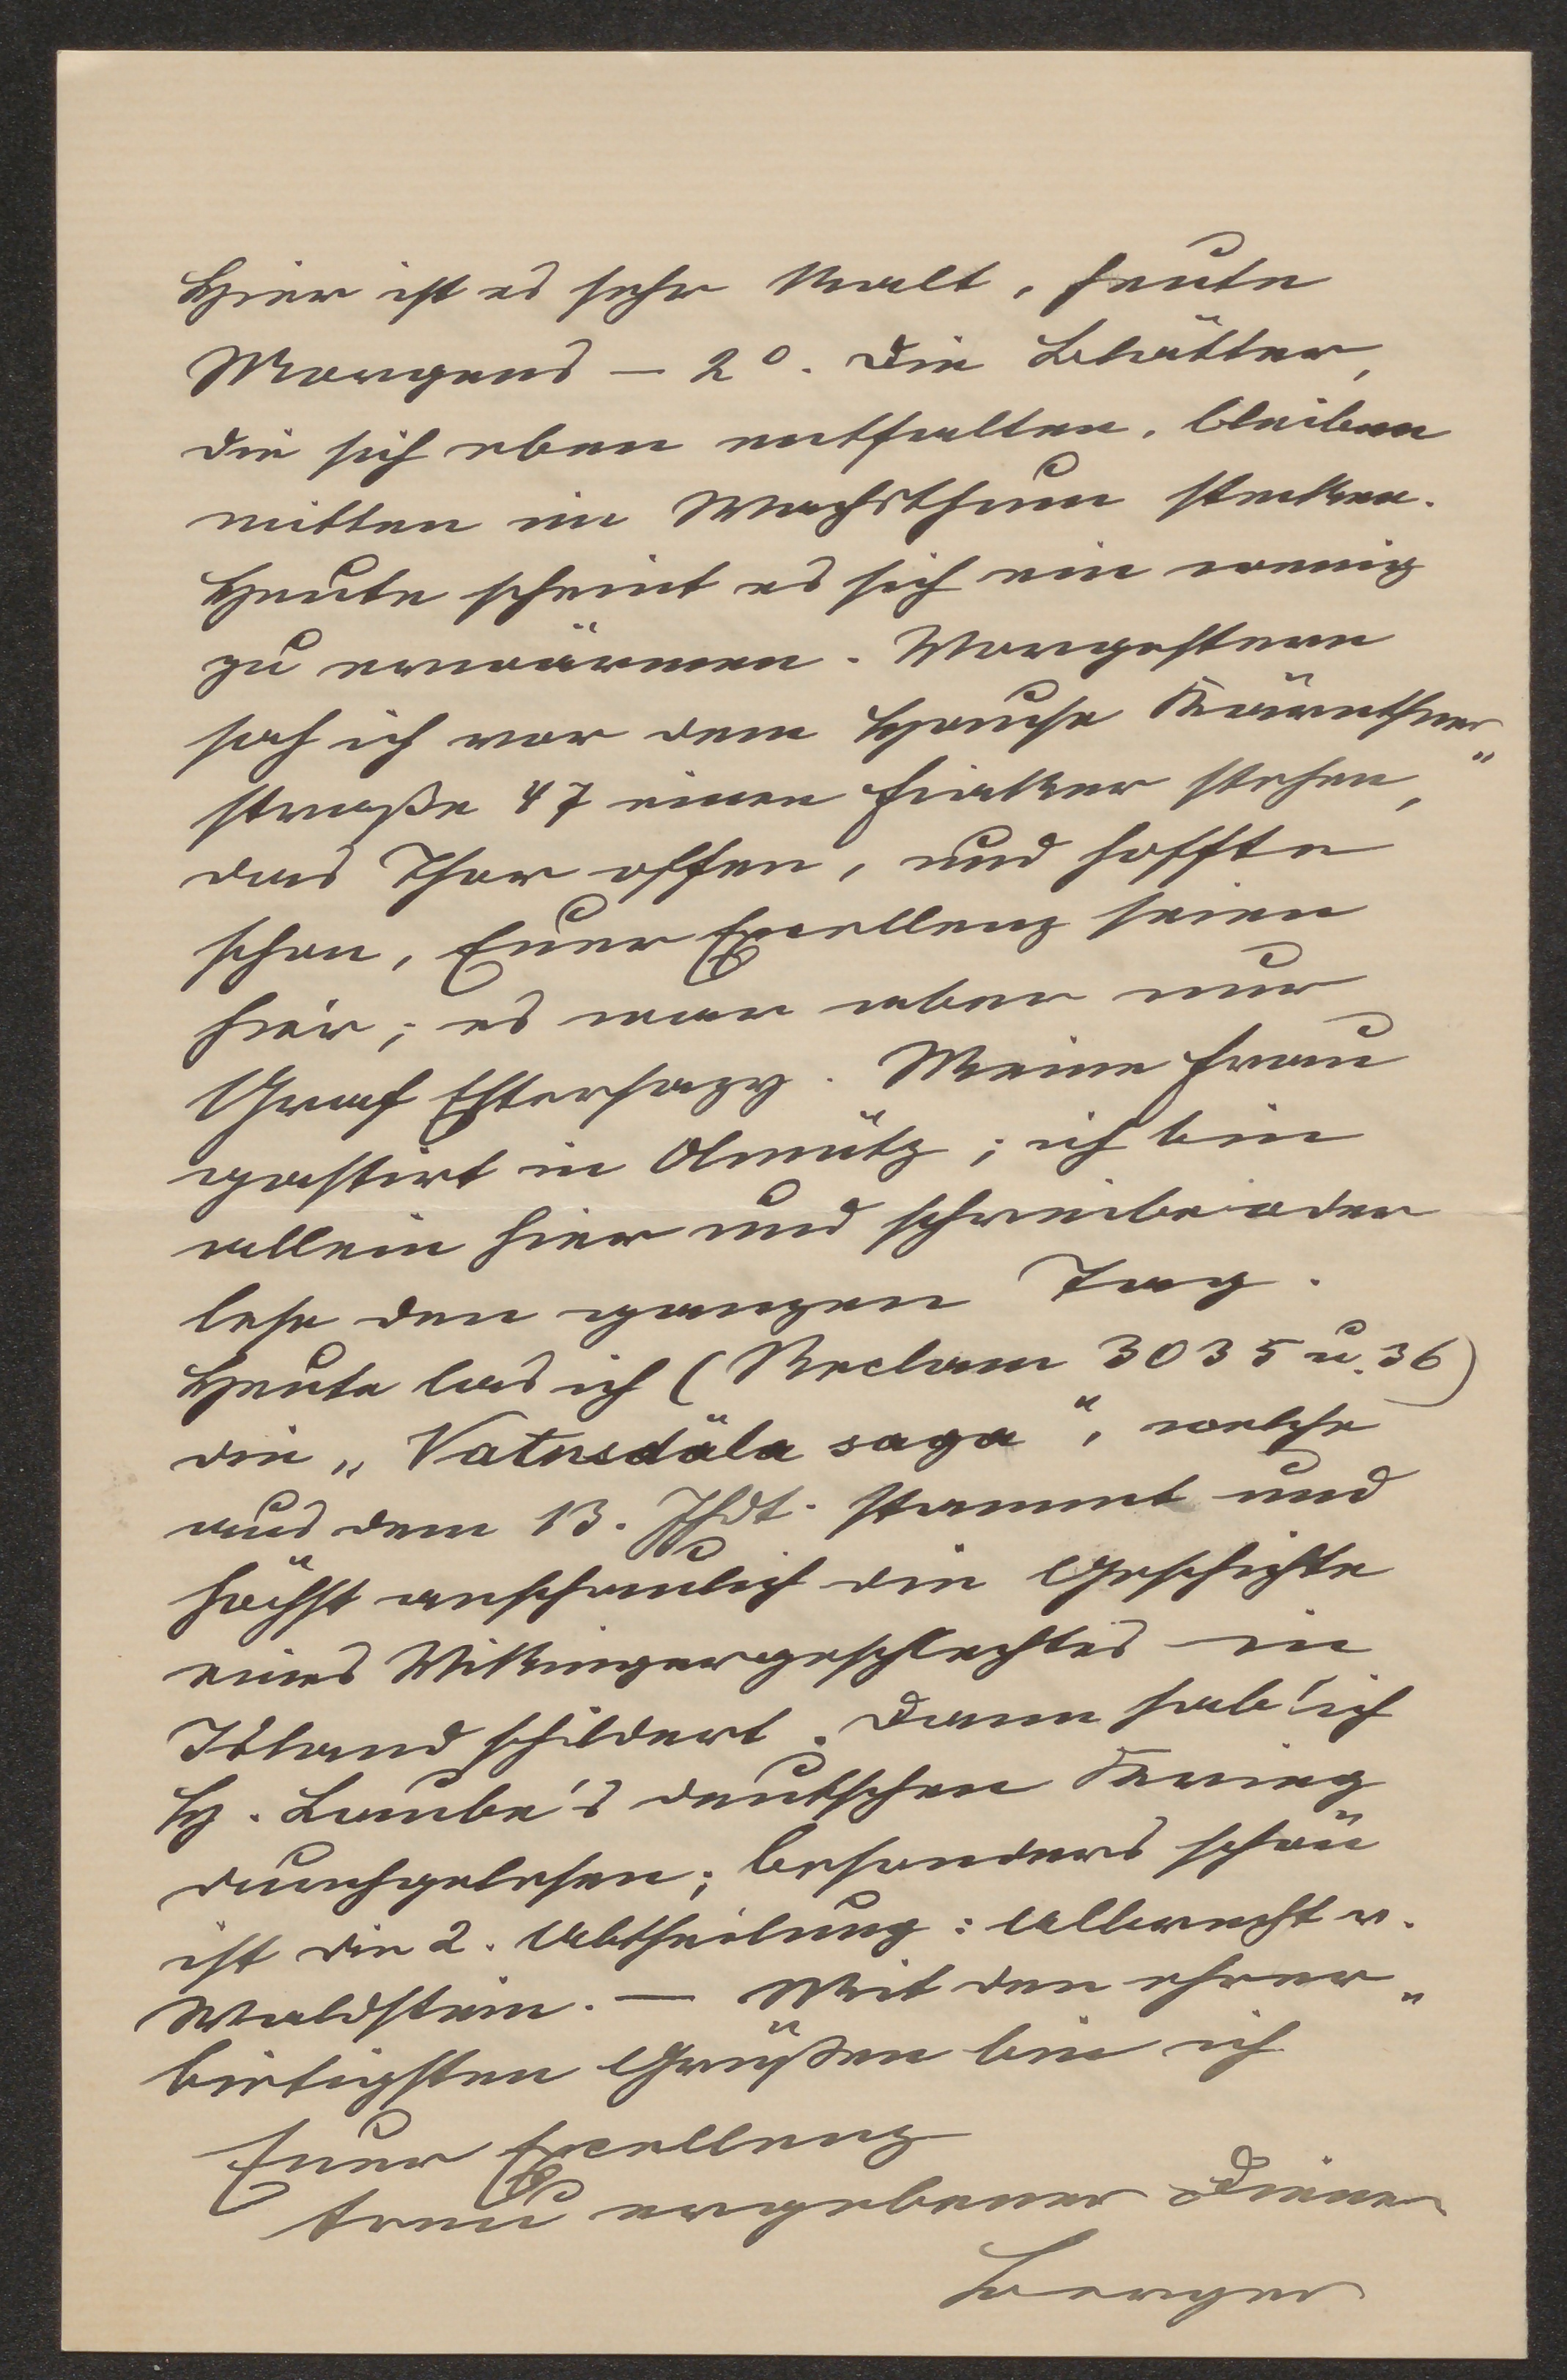 Hier ist es sehr kalt, heute
Morgens – 2°. Die Blätter,
die sich eben entfalten, bleiben
mitten im Wachsthum stecken.
Heute scheint es sich ein wenig
zu erwärmen. Vorgestern
sah ich vor dem Hause Kärnthner„
straße 47 einen Fiaker stehen,
das Thor offen, und hoffte
schon, Euer Excellenz seien
hier; es war aber nur
Graf Esterhazy. Meine Frau
gastirt in Olmütz; ich bin
allein hier und schreibe oder
lese den ganzen Tag.
Heute las ich (Reclam 3035 u. 36)
die „Vatnsdäla saga“, welche
aus dem 13. Jhdt. stammt und
höchst anschaulich die Geschichte
eines Wikingergeschlechtes in
Island schildert. Dann hab' ich
H. Laube's deutschen Krieg
durchgelesen; besonders schön
ist die 2. Abtheilung: Albrecht v.
Waldstein. — Mit den ehrer„
bietigsten Grüßen bin ich
Euer Excellenz
treu ergebener Diener
Berger